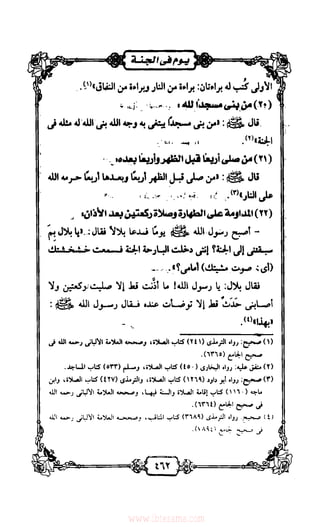 يوم في الجنة
الأولى كُتب له براءتان: براءة من النار وبراءة من النفاق»(١).
(٢٠) من بنى مسجدًا لله
قال ﷺ: «من بنى مسجدًا يبتغي به وجه الله بنى الله له مثله في
الجنة»(٢).
(٢١) من صلى أربعًا قبل الظهر وأربعًا بعده
قال ﷺ: «من صلى أربعًا قبل الظهر وأربعًا بعدها حرمه الله
على النار»(٣).
(٢٢) المداومة على الطهارة وصلاة ركعتين بعد الأذان
- أصبح رسول الله ﷺ يومًا فدعا بلالًا فقال: «يا بلال بمَ
سبقتني إلى الجنة؟ إنني دخلت البارحة الجنة فسمعت خشخشتك
(أي: صوت مشيتك) أمامي؟».
فقال بلال: يا رسول الله! ما أذَّنت قط إلا صليت ركعتين ولا
أصابني حدث قط إلا توضأت عنده فقال رسول الله ﷺ:
«بهذا»(٤).
(١) صحيح: رواه الترمذي (٢٤١) كتاب الصلاة، وصححه العلامة الألباني رحمه الله في
صحيح الجامع (٦٣٦٥).
(٢) متفق عليه: رواه البخاري (٤٥٠) كتاب الصلاة، ومسلم (٥٣٣) كتاب المساجد.
(٣) صحيح: رواه أبو داود (١٢٦٩) كتاب الصلاة، والترمذي (٤٢٧) كتاب الصلاة، وابن
ماجه (١١٦٠) كتاب إقامة الصلاة والسنة فيها، وصححه العلامة الألباني رحمه الله
في صحيح الجامع (٦٣٦٤).
(٤) صحيح: رواه الترمذي (٣٦٨٩) كتاب المناقب، وصححه العلامة الألباني رحمه الله
في صحيح الجامع (٧٨٩٤).
٤٦٢